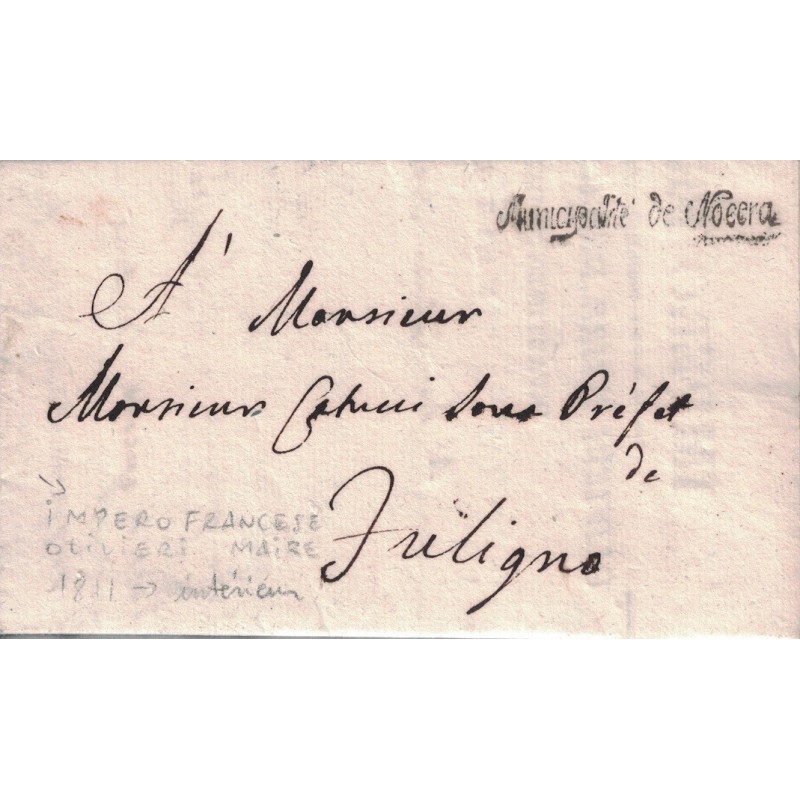 Municipalité de Nocera
A' Monsieur
Monsieur Sous Préfet
de
Fuligno
IMPERO FRANCESE
OLIVIERI MAIRE
1811 → intérieur